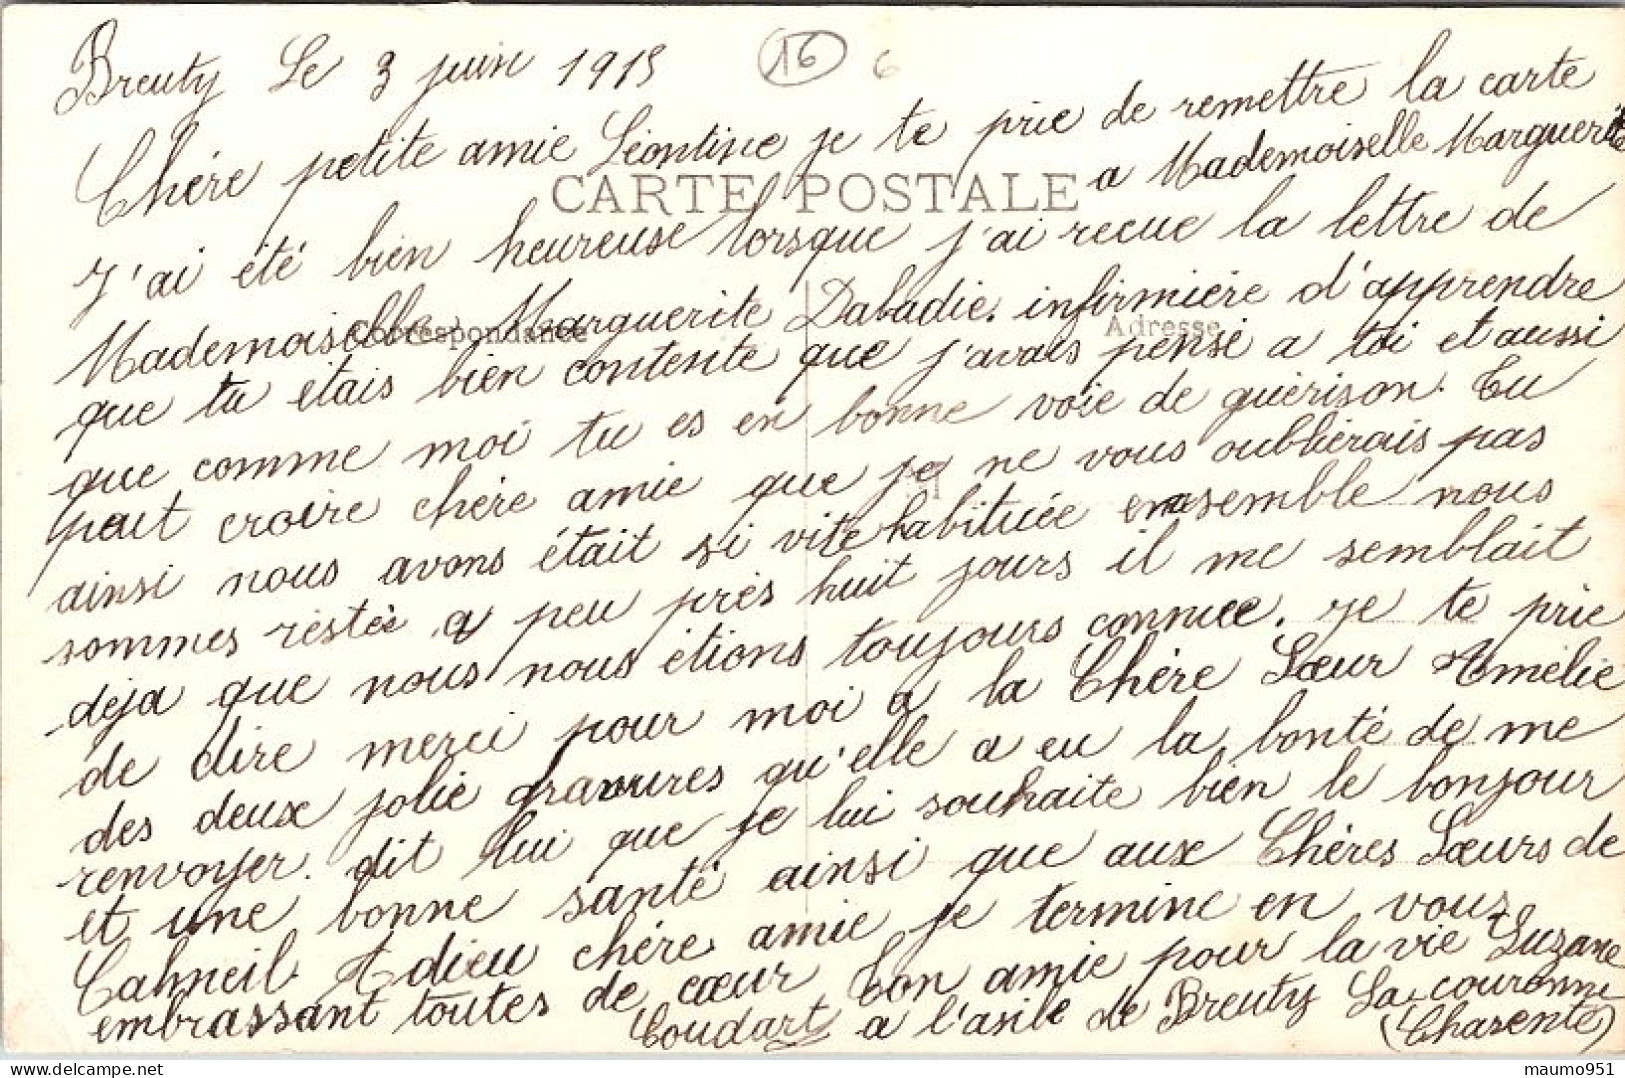 Breuty Le 3 juin 1915
16 6
Chère petite amie Léontine je te prie de remettre la carte
a Mademoiselle Marguerite
CARTE POSTALE
J'ai été bien heureuse lorsque j'ai recue la lettre de
Mademoiselle Marguerite Dabadie. infirmière d'apprendre
Correspondance
Adresse
que tu étais bien contente que j'avais pensé a toi et aussi
que comme moi tu es en bonne voie de guérison. Tu
peut croire chère amie que je ne vous oublierais pas
ainsi nous avons était si vite habituée ensemble nous
sommes restée a peu près huit jours il me semblait
déja que nous nous étions toujours connuee. Je te prie
de dire merci pour moi a la Chère Sœur Amélie
des deux jolie gravures qu'elle a eu la bonté de me
renvoyer. dit lui que je lui souhaite bien le bonjour
et une bonne santé ainsi que aux Chères Sœurs de
Adieu chère amie je termine en vous
embrassant toutes de cœur ton amie pour la vie Suzane
Coudart a l'asile de Breuty La couronne
(Charente)
maumo951